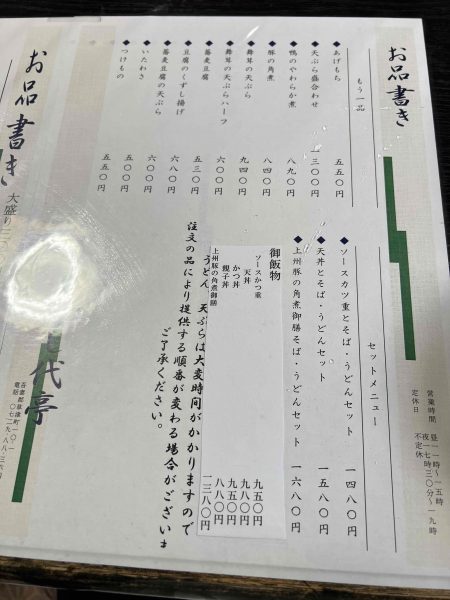 お品書き
営業時間
昼一一時〜一五時
夜一七時三〇分〜一九時
定休日
不定休
もう一品
◆あげもち 五五〇円
◆天ぷら盛合わせ 一三〇〇円
◆鴨のやわらか煮 八九〇円
◆豚の角煮 八四〇円
◆舞茸の天ぷら 九四〇円
◆舞茸の天ぷらハーフ 六〇〇円
◆蕎麦豆腐 五三〇円
◆豆腐のくずし揚げ 六八〇円
◆蕎麦豆腐の天ぷら 六〇〇円
◆いたわさ 五〇〇円
◆つけもの 五五〇円
セットメニュー
◆ソースカツ重とそば・うどんセット 一四八〇円
◆天丼とそば・うどんセット 一五八〇円
◆上州豚の角煮御膳そば・うどんセット 一六八〇円
御飯物
ソースかつ重 九五〇円
天丼 九八〇円
かつ丼 九五〇円
親子丼 八八〇円
上州豚の角煮御膳 一三八〇円
うどん、天ぷらは大変時間がかかりますので
注文の品により提供する順番が変わる場合がございま
ご了承ください。
お品書き
大盛り
代亭